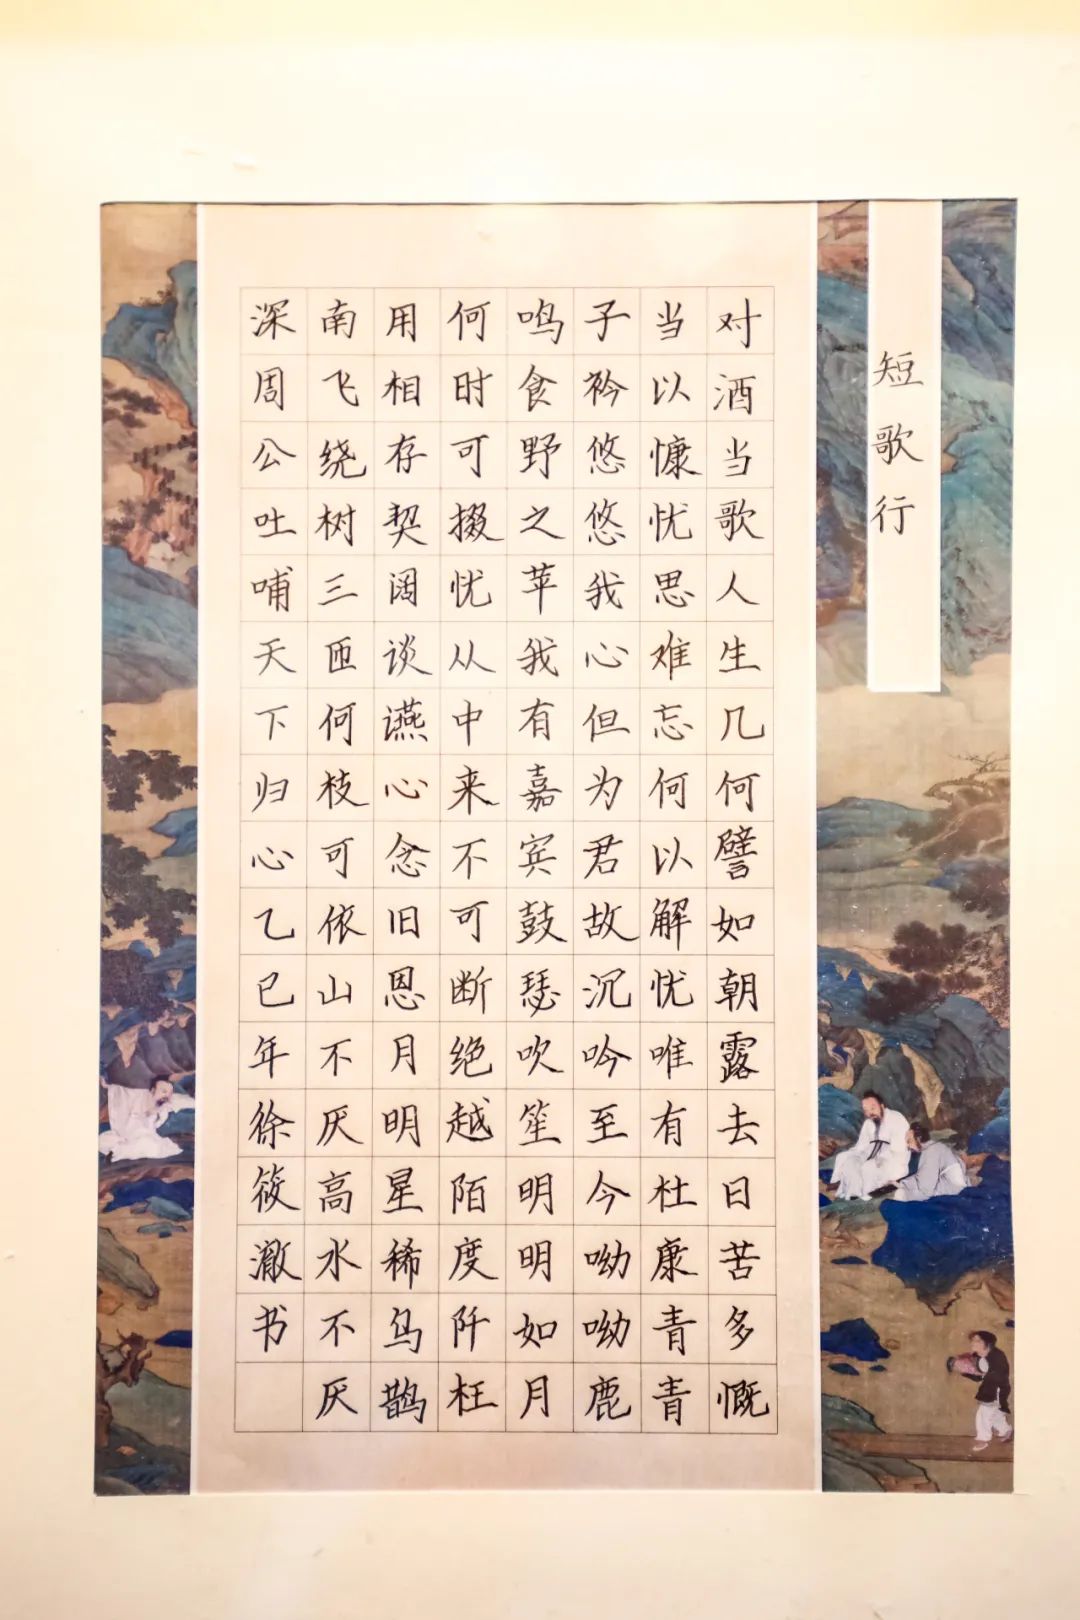 短歌行
对酒当歌人生几何譬如朝露去日苦多慨
当以慷忧思难忘何以解忧唯有杜康青青
子衿悠悠我心但为君故沉吟至今呦呦鹿
鸣食野之苹我有嘉宾鼓瑟吹笙明明如月
何时可掇忧从中来不可断绝越陌度阡枉
用相存契阔谈䜩心念旧恩月明星稀乌鹊
南飞绕树三匝何枝可依山不厌高水不厌
深周公吐哺天下归心乙巳年徐筱澈书